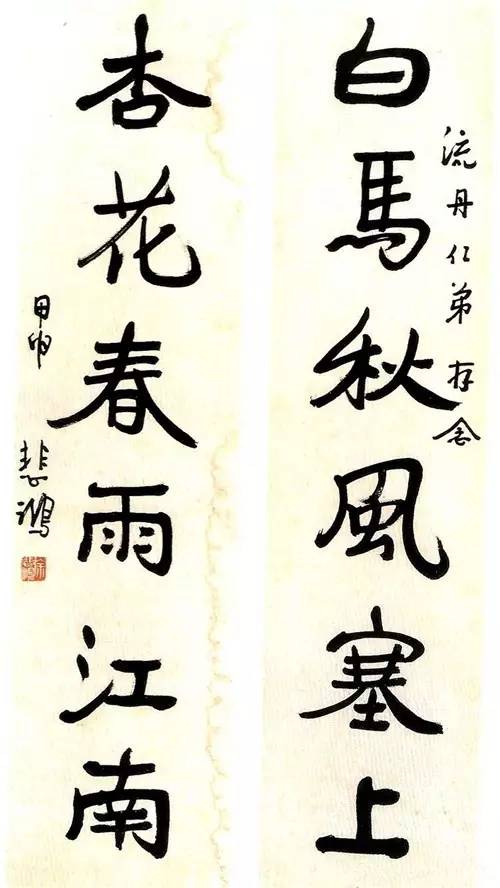 流丹仁弟存念
白馬秋風塞上
杏花春雨江南
甲申
悲鴻